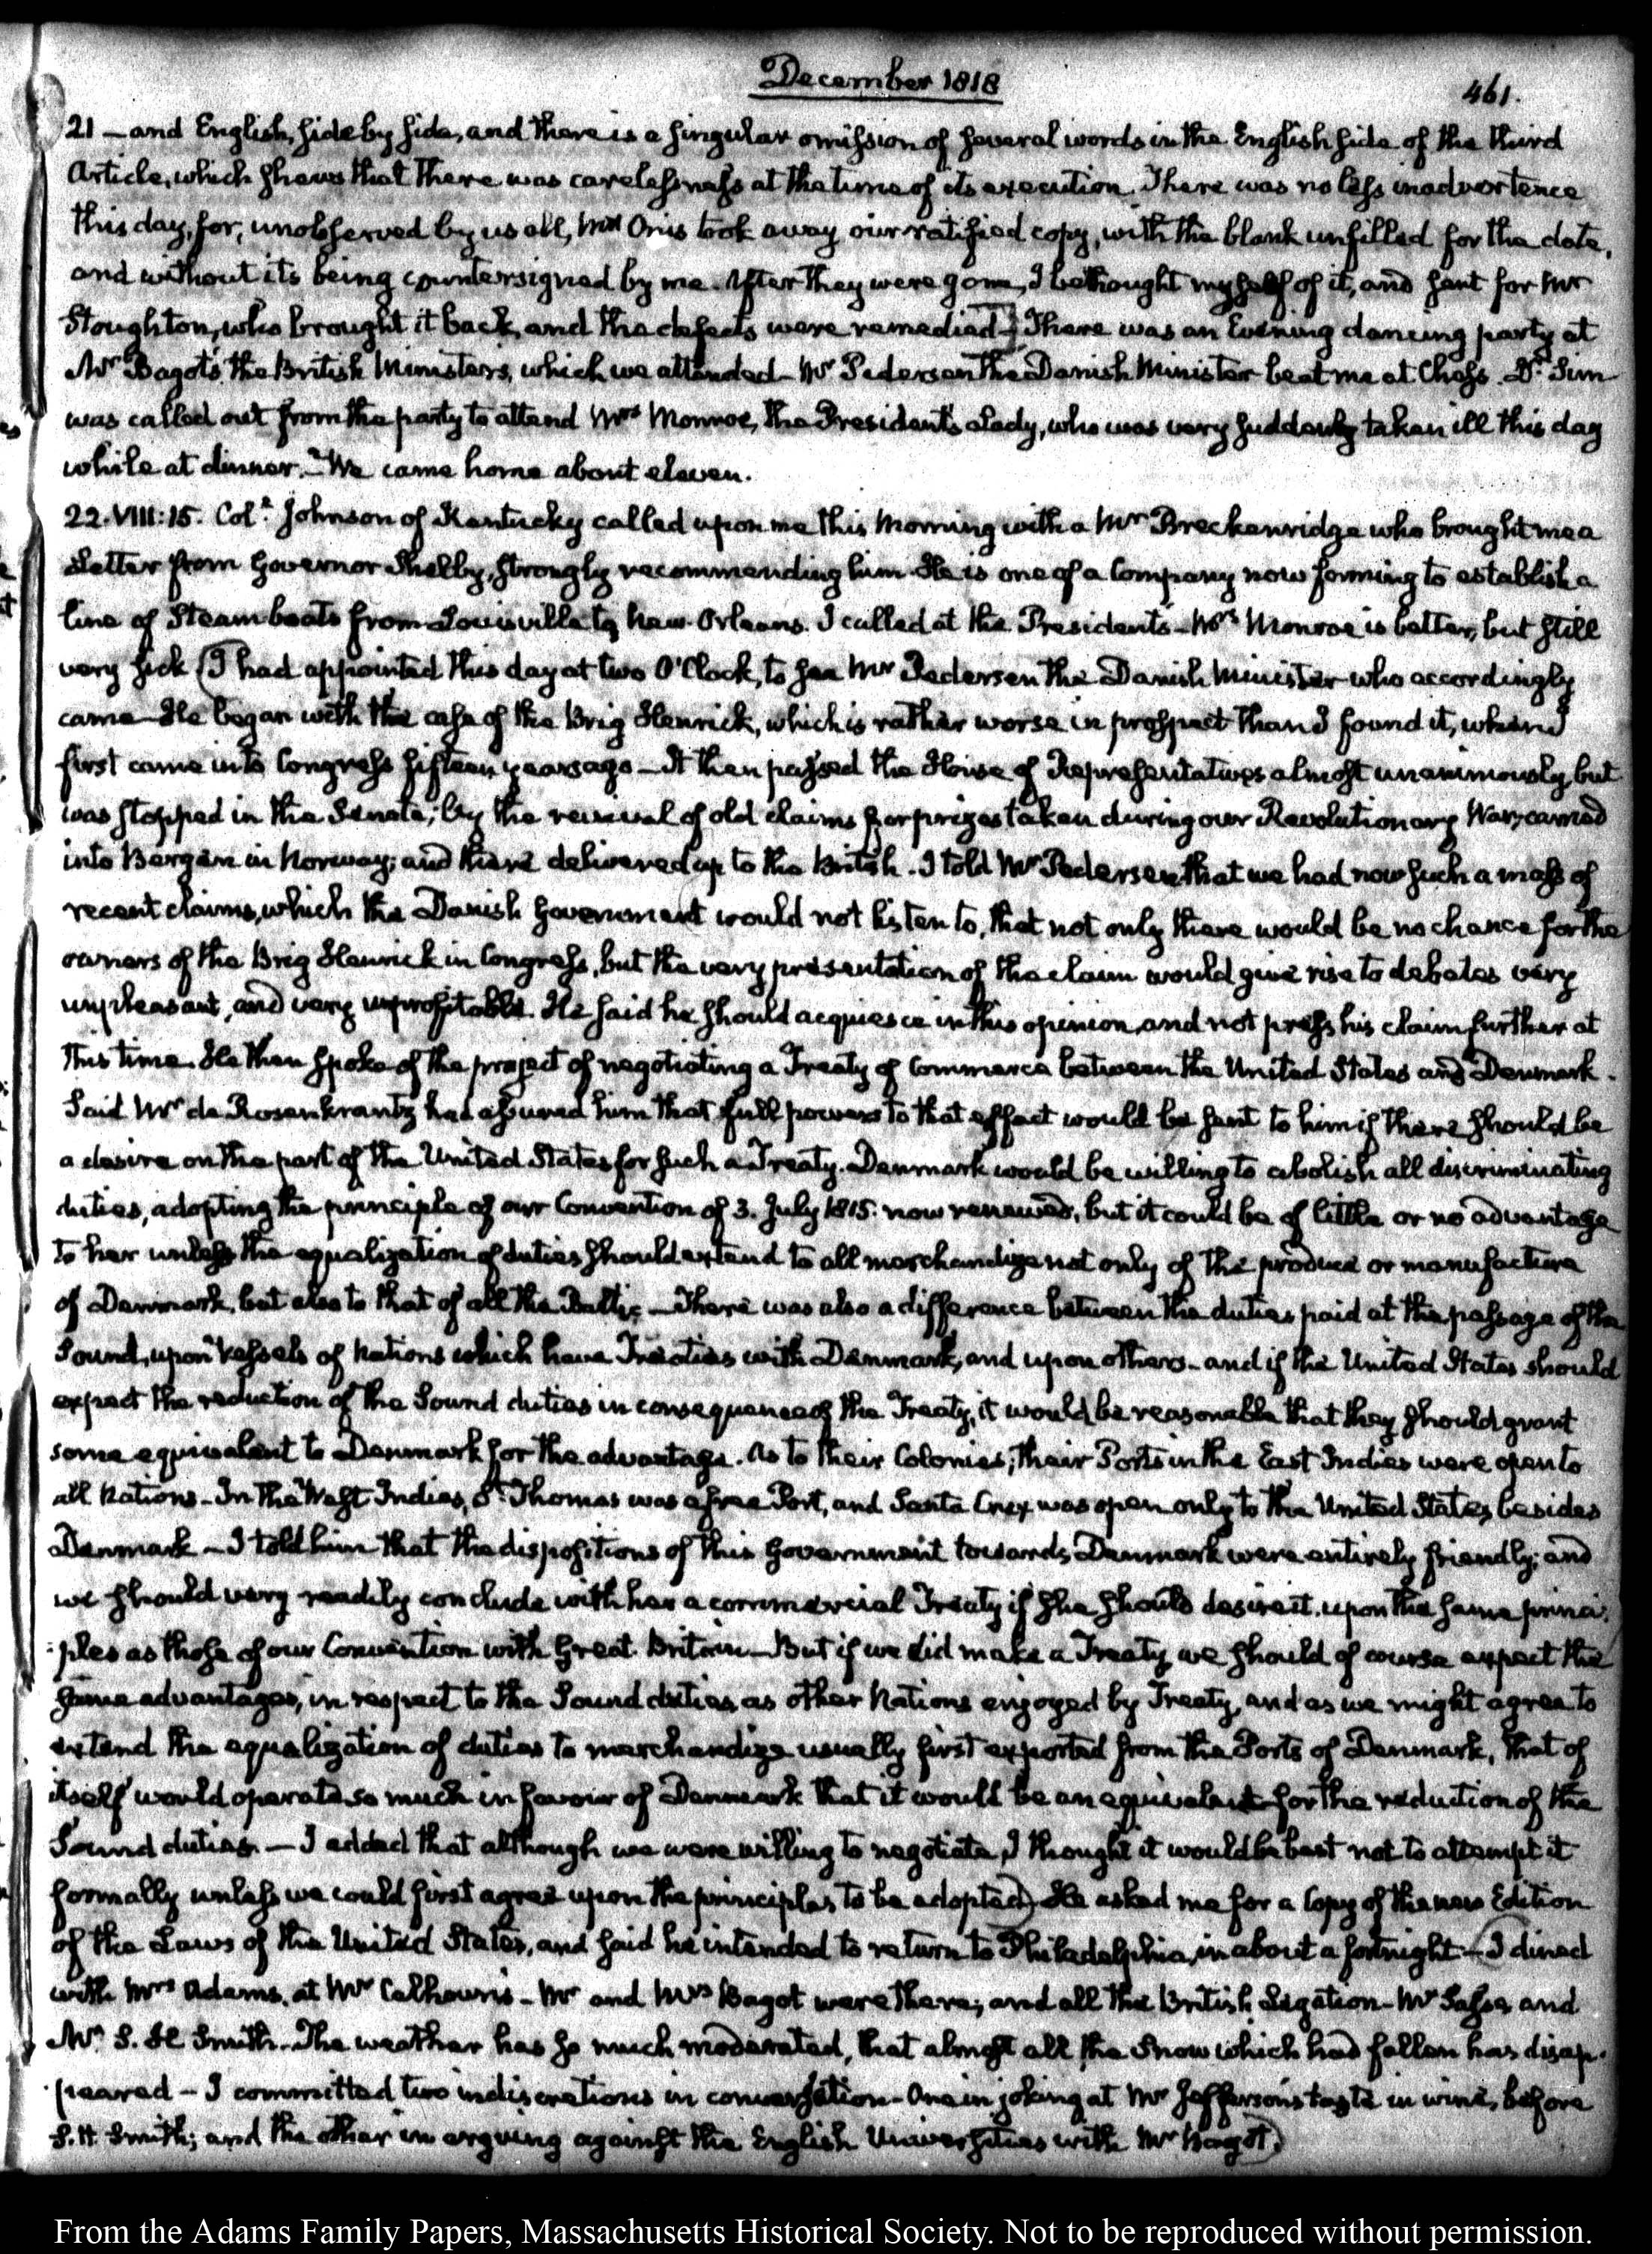 December 1818
461.
21 – and English, side by side, and there is a singular omission of several words in the English side of the third
Article, which shews that there was carelessness at the time of its execution. There was no less inadvertence
this day, for, unobserved by us all, Mr Onis took away our ratified copy, with the blank unfilled for the date,
and without its being countersigned by me. After they were gone, I bethought myself of it, and sent for Mr
Stoughton, who brought it back, and the defects were remedied. There was an Evening dancing party at
Mr Bagot's the British Minister's, which we attended – Mr Pedersen the Danish Minister beat me at Chess. Dr. Sim
was called out from the party to attend Mrs Monroe, the President's Lady, who was very suddenly taken ill this day
while at dinner. – We came home about eleven.
22. VIII:15. Coll. Johnson of Kentucky called upon me this Morning with a Mr Breckenridge who brought me a
Letter from Governor Shelby, strongly recommending him. He is one of a Company now forming to establish a
line of Steam boats from Louisville to New-Orleans. I called at the President's – Mrs Monroe is better, but still
very sick (I had appointed this day at two O'Clock, to see Mr Pedersen the Danish Minister who accordingly
came – He began with the case of the Brig Henrick, which is rather worse in prospect than I found it, when I
first came into Congress fifteen years ago – It then passed the House of Representatives almost unanimously, but
was stopped in the Senate, by the revival of old claims for prizes taken during our Revolutionary War, carried
into Bergen in Norway; and there delivered up to the British. I told Mr Pedersen that we had now such a mass of
recent claims, which the Danish Government would not listen to, that not only there would be no chance for the
owners of the Brig Henrick in Congress, but the very presentation of the claim would give rise to debates very
unpleasant, and very unprofitable. He said he should acquiesce in this opinion, and not press his claim further at
this time. He then spoke of the project of negotiating a Treaty of Commerce between the United States and Denmark.
Said Mr de Rosenkrantz had assured him that full powers to that effect would be sent to him if there should be
a desire on the part of the United States for such a Treaty. Denmark would be willing to abolish all discriminating
duties, adopting the principle of our Convention of 3. July 1815. now renewed, but it could be of little or no advantage
to her unless the equalization of duties should extend to all merchandize not only of the produce or manufacture
of Denmark, but also to that of all the Baltic – There was also a difference between the duties paid at the passage of the
Sound, upon Vessels of Nations which have Treaties with Denmark, and upon others – and if the United States should
expect the reduction of the Sound duties in consequence of the Treaty, it would be reasonable that they should grant
some equivalent to Denmark for the advantage. As to their Colonies; their Ports in the East Indies were open to
all Nations – In the West Indies, St. Thomas was a free Port, and Santa Crux was open only to the United States, besides
Denmark – I told him that the dispositions of this Government towards Denmark were entirely friendly; and
we should very readily conclude with her a commercial Treaty if she should desire it, upon the same princi:
:ples as those of our Convention with Great Britain – But if we did make a Treaty we should of course expect the
same advantages, in respect to the Sound duties, as other Nations enjoyed by Treaty, and as we might agree to
extend the equalization of duties to merchandize usually first exported from the Ports of Denmark, that of
itself would operate so much in favour of Denmark that it would be an equivalent for the reduction of the
Sound duties. – I added that although we were willing to negotiate, I thought it would be best not to attempt it
formally unless we could first agree upon the principles to be adopted) He asked me for a Copy of the new Edition
of the Laws of the United States, and said he intended to return to Philadelphia, in about a fortnight – (I dined
with Mrs Adams, at Mr Calhoun's – Mr and Mrs Bagot were there; and all the British Legation – Mr and
Mr S. H Smith. The weather has so much moderated, that almost all the Snow which had fallen has disap:
:peared – I committed two indiscretions in conversation – One in joking at Mr Jefferson's taste in wine, before
S. H. Smith; and the other in arguing against the English Universities with Mr Bagot.)
From the Adams Family Papers, Massachusetts Historical Society. Not to be reproduced without permission.